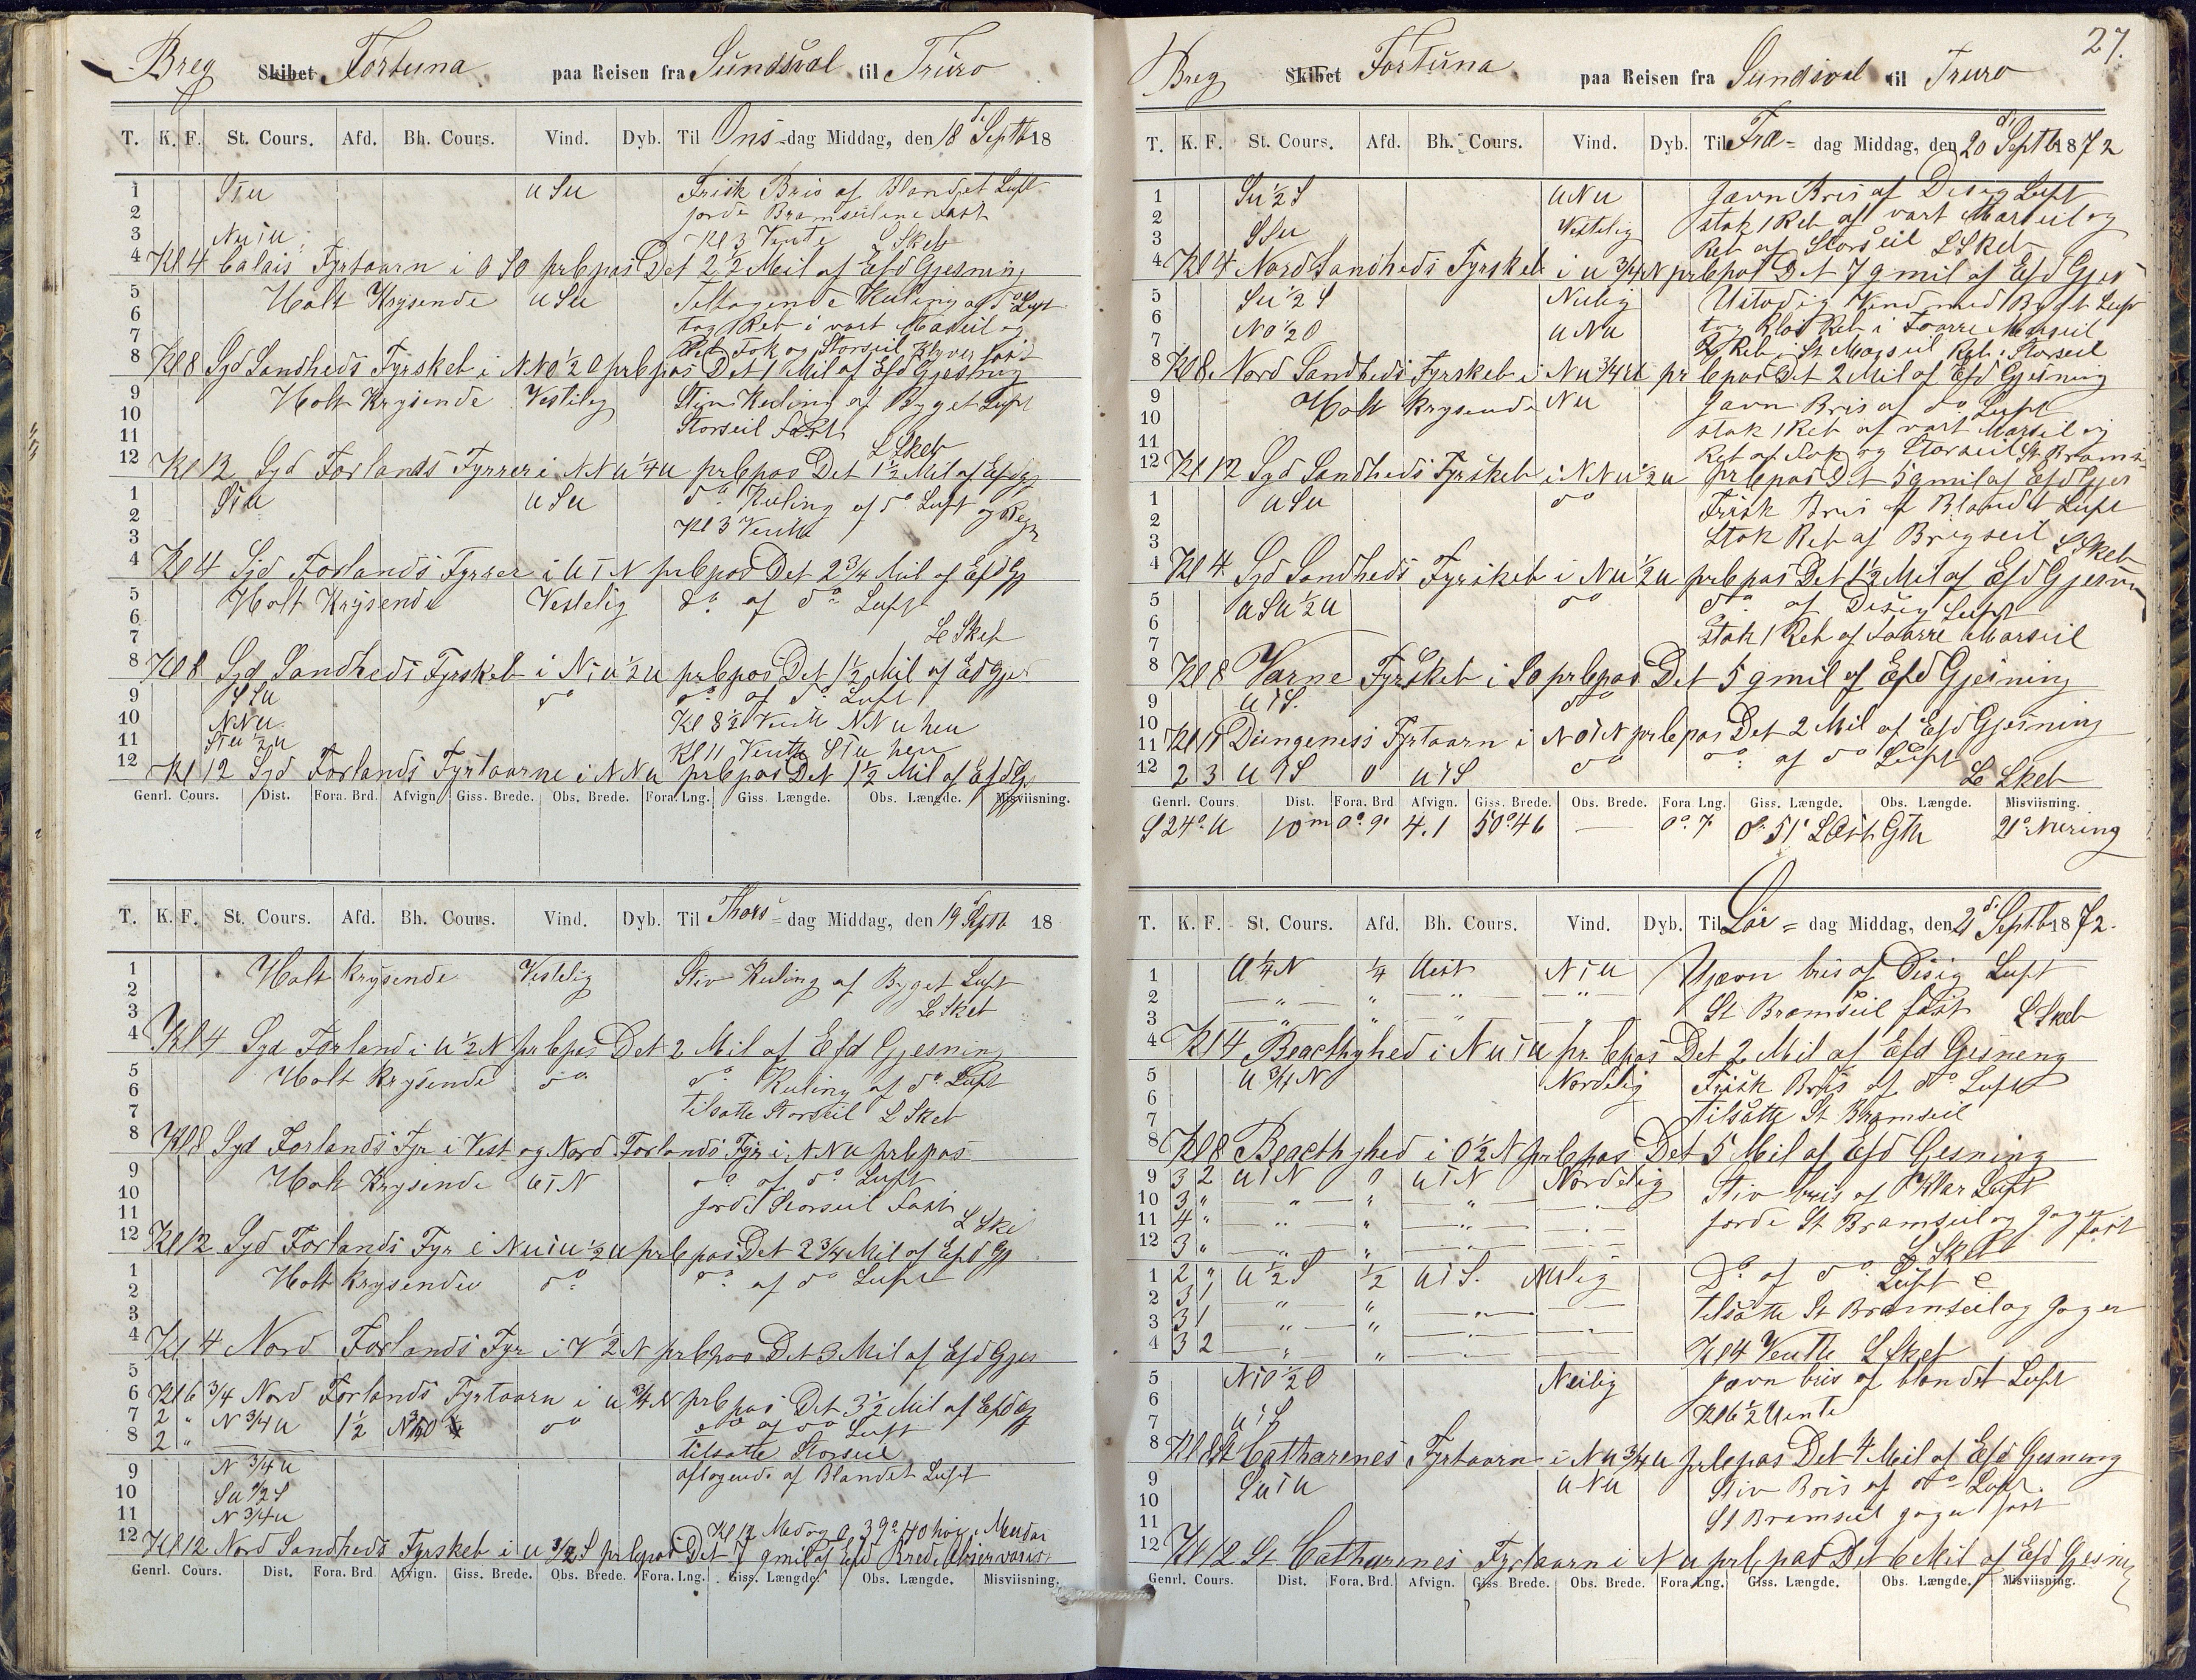 Breg Skibet Fortuna paa Reisen fra Sundsval til Truro
T. K. F. St. Cours. Afd. Bh. Cours. Vind. Dyb. Til Ons-dag Middag, den 18 d. Septb 18
1 STU USU Frisk Bris af Blandet Luft
2 jorde Bramseilene Fast
3 NUTU Kl 3 Vente L Skeb
4 Kl 4 Calais Fyrtaarn i OSO prCpas Det 2½ Mil af Efd Gjesning
5 Holt Krysende USU Tiltagende Kuling af do Luft
6 tog 1 Reb i vart Marseil og
7 Reb Fok og Storseil Klyver fast
8 Kl 8 Syd Sandheds Fyrskeb i NNO½O prCpas Det 1 Mil af Efd Gjesning
9 Holt Krysende Vestelig Stiv Kuling af Byget Luft
10 Storseil Fast
11 L Skeb
12 Kl 12 Syd Forlands Fyrrer i NNU¼U prCpas Det 1½ Mil af Efd Gj
1 STU USU do Kuling af do Luft og Regn
2 Kl 3 Vente
3
4 Kl 4 Syd Forlands Fyrrer i UTN prCpas Det 2¾ Mil af Efd Gj
5 Holt Krysende Vestelig do af do Luft
6
7 L Skeb
8 Kl 8 Syd Sandheds Fyrskeb i NTU½U prCpas Det 1½ Mil af Efd Gjes
9 SSU do do af do Luft
10 NNU Kl 8½ Vente NNU hen
11 STU½U Kl 11 Vente STU hen
12 Kl 12 Syd Forlands Fyrtaarne i NNU prCpas Det 1½ Mil af Efd Gj
Genrl. Cours. Dist. Fora. Brd. Afvign. Giss. Brede. Obs. Brede. Fora. Lng. Giss. Længde. Obs. Længde. Misviisning.
T. K. F. St. Cours. Afd. Bh. Cours. Vind. Dyb. Til Thors-dag Middag, den 19 d Septb 18
1 Holt Krysende Vestelig Stiv Kuling af Byget Luft
2
3 L Skeb
4 Kl 4 Syd Forland i U½N prCpas Det 2 Mil af Efd Gjesning
5 Holt Krysende do do Kuling af do Luft
6 tilsatte Storseil L Skeb
7
8 Kl 8 Syd Forlands Fyr i Vest og Nord Forlands Fyr i NNU prCpas
9 Holt Krysende UTN do af do Luft
10 jorde Storseil Fast
11 L Ske
12 Kl 12 Syd Forlands Fyr i NUTU½U prCpas Det 2¾ Mil af Efd Gj
1 Holt Krysende do do af do Luft
2
3
4 Kl 4 Nord Forlands Fyr i V½N prCpas Det 3 Mil af Efd Gjes
5
6 Kl 6¾ Nord Forlands Fyrtaarn i U¾N prCpas Det 3½ Mil af Efd Gj
7 2 " N¾U 1½ do do af do Luft
8 2 " tilsatte Storseil
9 N¾U aftagende af Blandet Luft
10 SU½S
11 N¾U
12 Kl 12 Nord Sandheds Fyrskeb i U prCpas Det 7 qmil af Efd
Genrl. Cours. Dist. Fora. Brd. Afvign. Giss. Brede. Obs. Brede. Fora. Lng. Giss. Længde. Obs. Længde. Misviisning.
27.
Breg Skibet Fortuna paa Reisen fra Sundsval til Truro
T. K. F. St. Cours. Afd. Bh. Cours. Vind. Dyb. Til Fre- dag Middag, den 20 d. Septb 1872
1 SU½S UNU Jævn Bris af Disig Luft
2 Vestelig stak 1 Reb af vart Marseil og
3 SSU Reb af Storseil L Skeb
4 Kl 4 Nord Sandheds Fyrskeb i U¾N prCpas Det 7 qmil af Efd Gjes
5 SU½S NUlig Ustadig Vind med Byget Luft
6 NO½O UNU tog Reb i Foarre Marseil
7 2 Reb i St Marseil Reb i Storseil
8 Kl 8. Nord Sandheds Fyrskeb i NU¾U prCpas Det 2 Mil af Efd Gjesning
9 Holt Krysende NU Jævn Bris af do Luft
10 stak 1 Reb af vart Marseil og
11 Reb af Fok og Storseil St Brams
12 Kl 12 Syd Sandheds Fyrskeb i NNU½U prCpas Det 5 qmil af Efd Gjes
1 USU do Frisk Bris af Blandet Luft
2 Stak Reb af Brigseil
3 L Skeb
4 Kl 4 Syd Sandheds Fyrskeb i NU½U prCpas Det 1½ Mil af Efd Gjesnin
5 USU½U do do af Disig Luft
6 stak 1 Reb af Foarre Marseil
7
8 Kl 8 Varne Fyrskeb i SO prCpas Det 5 qmil af Efd Gjesning
9 UTS. do
10
11 Kl 11 Dungeness Fyrtaarn i NOTN prCpas Det 2 Mil af Efd Gjesning
12 2 3 UTS 0 UTS do do af do Luft L Skeb
Genrl. Cours. Dist. Fora. Brd. Afvign. Giss. Brede. Obs. Brede. Fora. Lng. Giss. Længde. Obs. Længde. Misviisning.
S24°U 10m 0° 9' 4.1 50°46 — 0° 7' 0° 51' L Øst Gth 21° NUring
T. K. F. St. Cours. Afd. Bh. Cours. Vind. Dyb. Til Lør- dag Middag, den 21 d. Septb 1872.
1 U¼N ¼ Uest NTU Ujævn bris af Disig Luft
2 — " — " — " — — " — St Bramseil fast L Skeb
3 — " — " — " — — " —
4 Kl 4 Beacthyhed i NUTU prCpas Det 2 Mil af Efd Gesneng
5 U¾N Nordelig Frisk Bris af do Luft
6 tilsatte St Bramseil
7
8 Kl 8 Beacthyhed i O½N prCpas Det 5 Mil af Efd Gesning
9 3 2 UTN 0 UTN Nordelig Stiv bris af Klar Luft
10 3 " — " — " — " — — " — jorde St Bramseil og Jager fast
11 4 " — " — " — " — — " —
12 3 " — " — " — " — — " — L Skeb
1 2 " U½S ½ UTS. NUlig Do af do Luft
2 3 1 — " — " — " — — " — tilsatte St Bramseil og Jager
3 3 1 — " — " — " — — " —
4 3 2 — " — " — " — — " — Kl 4 Vente L Skeb
5 NTO½O NUlig Jævn bris af blandet Luft
6 Kl 6½ Uente
7 UTS
8 Kl 8 St Catharenes Fyrtaarn i NU¾U prCpas Det 4 Mil af Efd Gesning
9 SUTU UNU Stiv Bris af do Luft
10 St Bramseil Jager fast
11
12 Kl 12 St Catharenes Fyrtaarn i NU prCpas Det 6 Mil af Efd Gjesning
Genrl. Cours. Dist. Fora. Brd. Afvign. Giss. Brede. Obs. Brede. Fora. Lng. Giss. Længde. Obs. Længde. Misviisning.